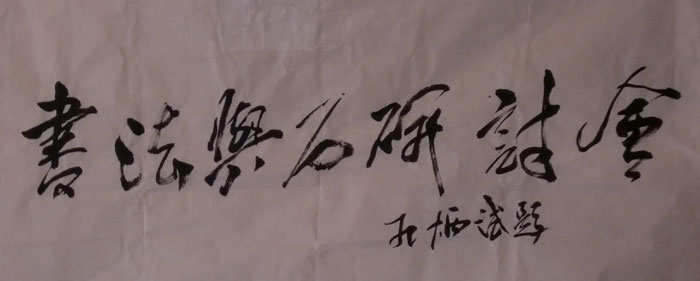 書法與石研討會
題